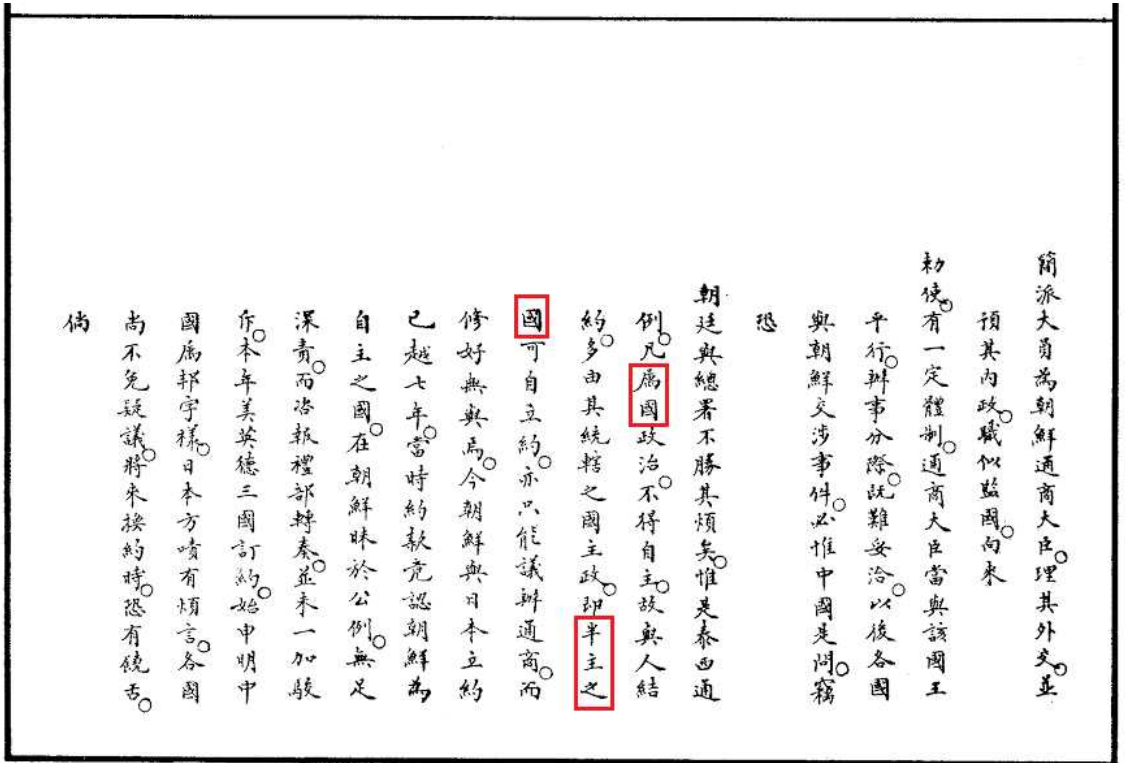 簡派大員為朝鮮通商大臣。理其外交。並
預其內政。職似監國。向來
勅使。有一定體制。通商大臣當與該國王
平行。辦事分際。既難妥洽。以後各國
與朝鮮交涉事件。必惟中國是問。竊
恐
朝廷與總署不勝其煩矣。惟是泰西通
例。凡屬國政治。不得自主。故與人結
約。多由其統轄之國主政。即半主之
國可自立約。亦只能議辦通商。而
修好無與焉。今朝鮮與日本立約
已越七年。當時約款竞認朝鮮為
自主之國。在朝鮮昧於公例。無足
深責。而咨報禮部轉奏。並未一加駁
斥。本年美英德三國訂約。始申明中
國屬邦字樣。日本方嘖有煩言。各國
尚不免疑議。將來換約時。恐有饒舌。
倘